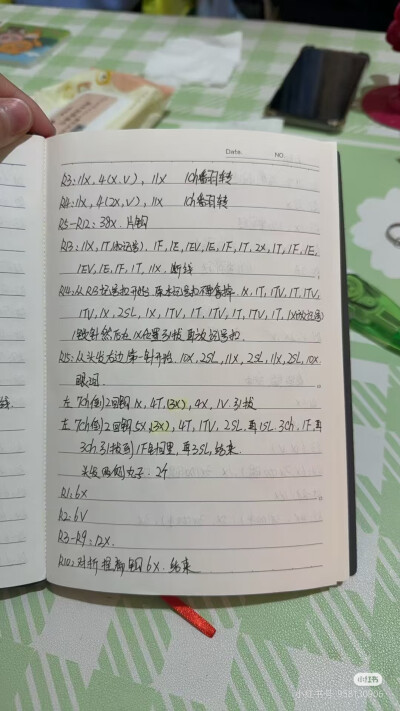 Date. NO.
R3: 11X, 4(X,V), 11X 1ch翻转
R4: 11X, 4(2X,V), 11X 1ch翻转
R5-R12: 38X. 片钩
R13: 11X, 1T(放记号), 1F, 1E, 1EV, 1E, 1F, 1T, 2X, 1T, 1F, 1E,
1EV, 1E, 1F, 1T, 11X. 断线
R14: 从R13记号扣开始 1X, 1T, 1TV, 1T, 1TV,
1TV, 1X, 2SL, 1X, 1TV, 1T, 1TV, 1T, 1TV, 1T, 1X
R15: 从头发右边第一针开始. 10X, 2SL, 11X, 2SL, 11X, 2SL, 10X
左 7ch倒2回钩 1X, 4T, (3X), 4X, 1V. 引拔
右 7ch倒2回钩 5X, (3X), 4T, 1TV, 2SL. 再1SL. 3ch, 1F, 再
3ch 引拔到1F, 再3SL, 结束.
头发两侧丸子: 2个
R1: 6X
R2: 6V
R3-R9: 12X.
R10: 对折 钩6X. 结束
线.
小红书
小红书号: 958130906